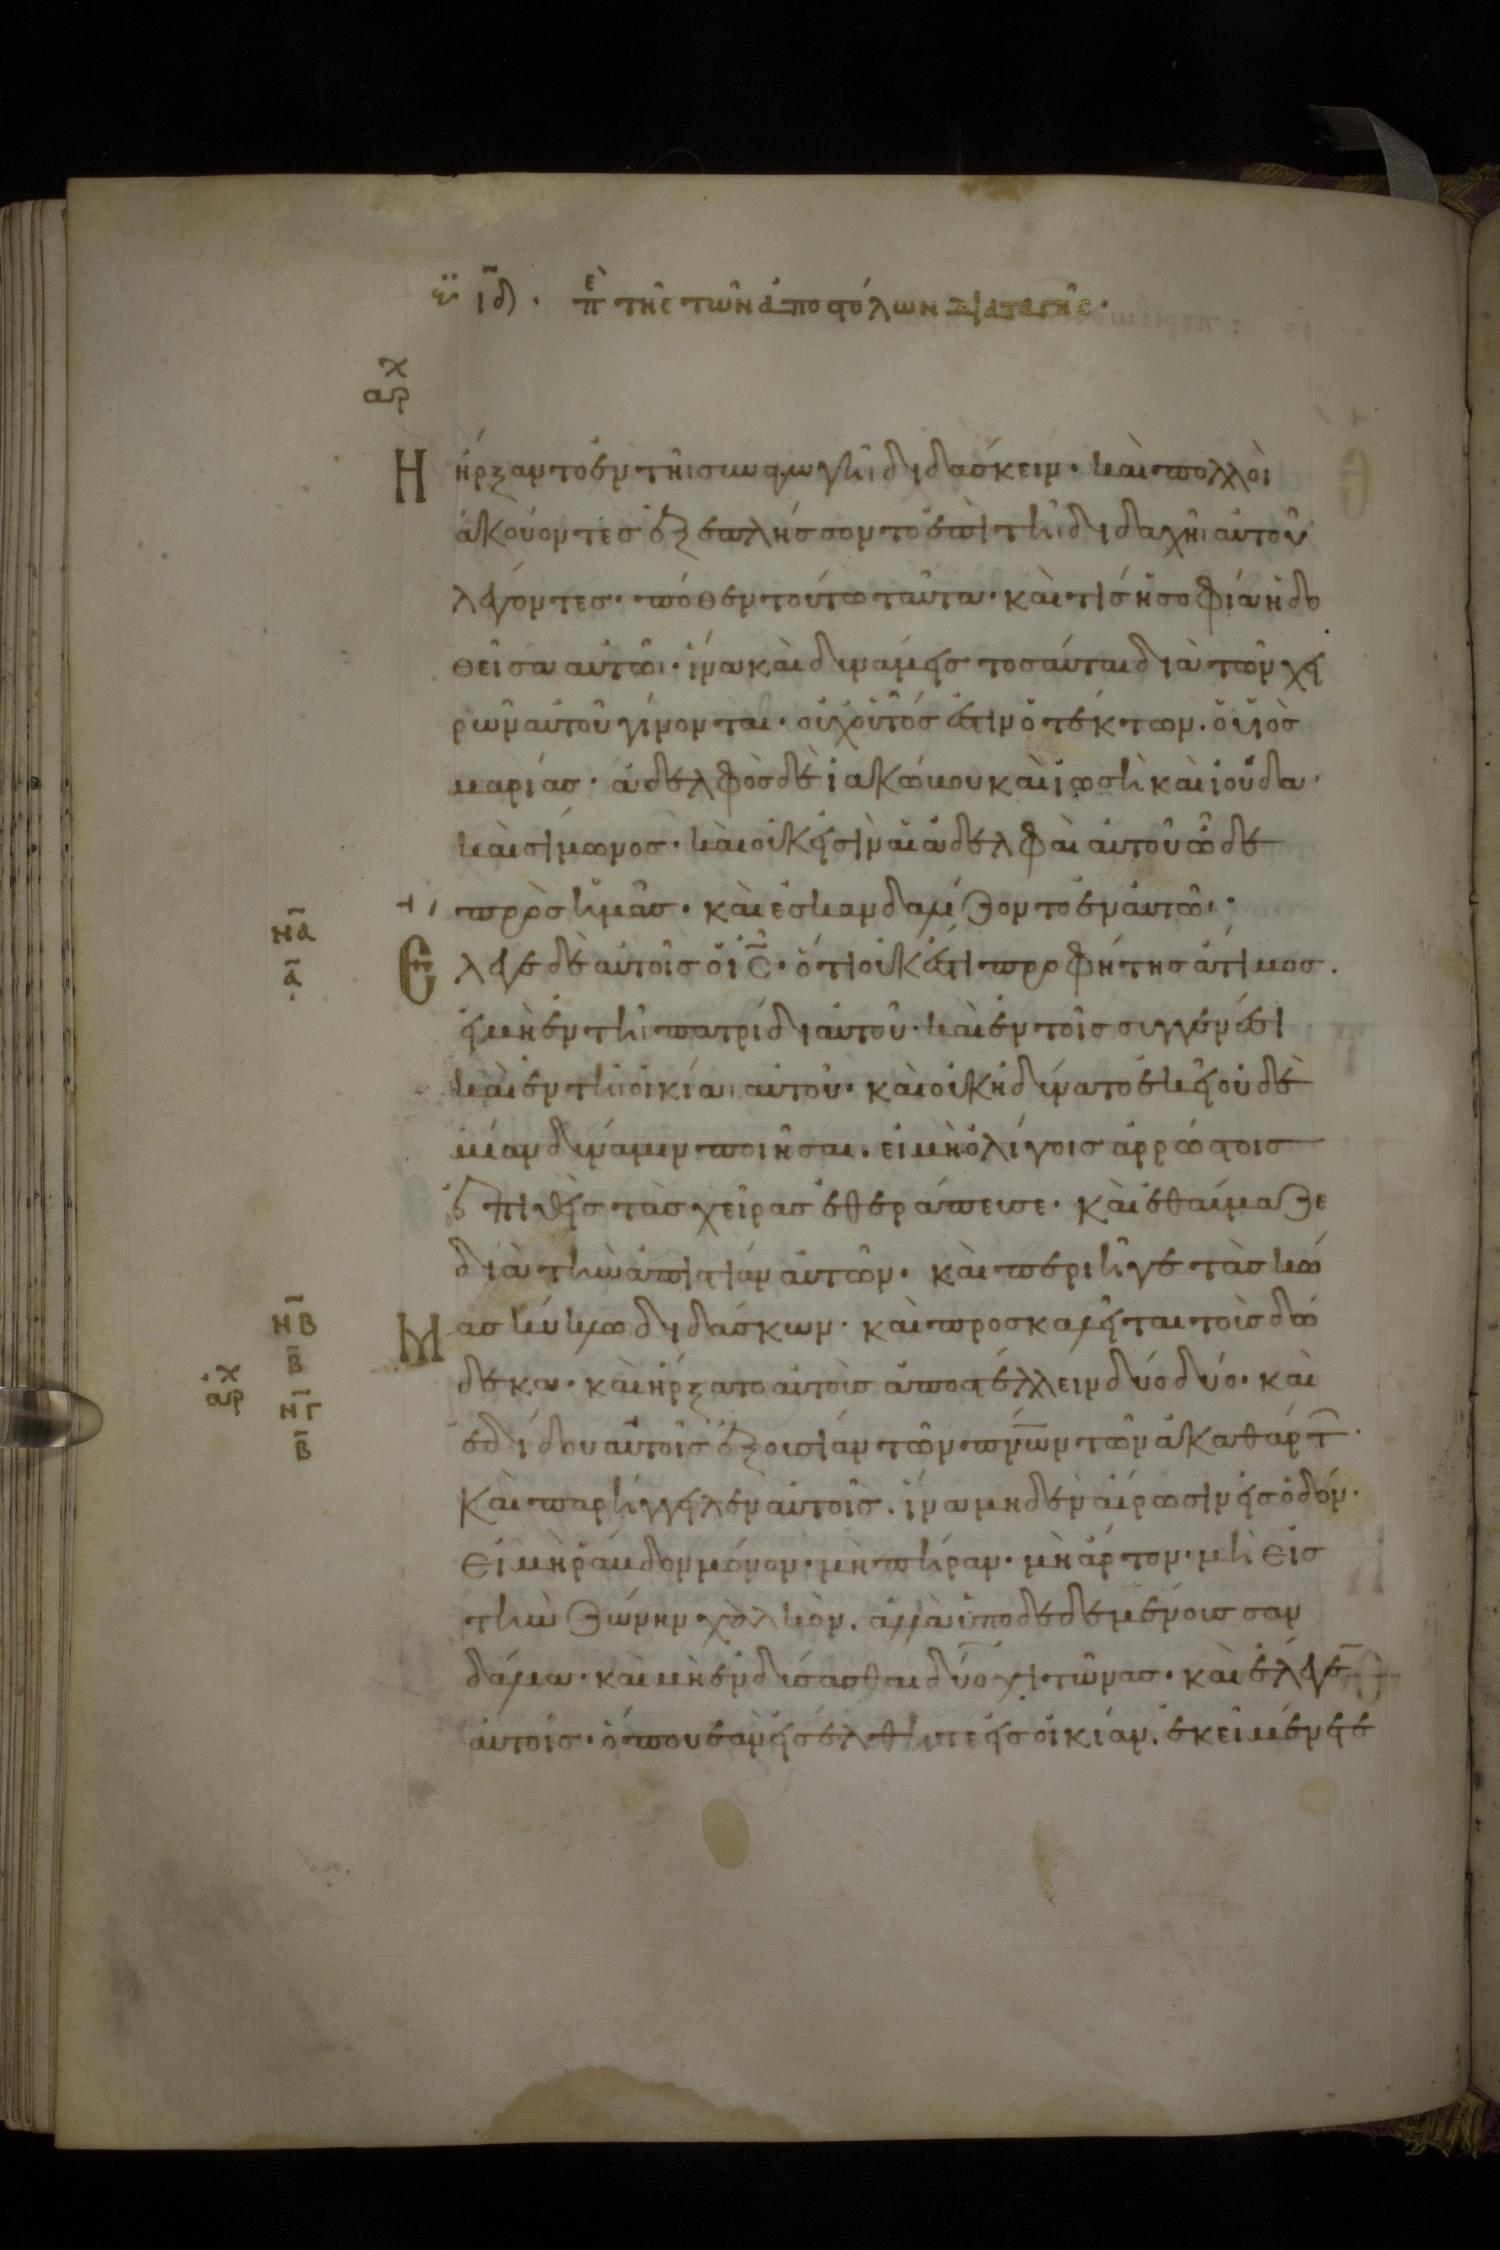 ιδ. περὶ τῆς τῶν ἀποστόλων διαταγῆς.
αρχ
ἤρξαντο ἐν τῆι συναγωγῆι διδάσκειν· καὶ πολλοὶ
ἀκούοντες ἐξεπλήσσοντο ἐπὶ τῆι διδαχῆι αὐτοῦ
λέγοντες· πόθεν τούτω ταῦτα· καὶ τίς ἡ σοφία ἡ δο
θεῖσα αὐτῶι· ἵνα καὶ δυνάμεις τοσαύται διὰ τῶν χει
ρῶν αὐτοῦ γίνονται· οὐχ οὗτός ἐστιν ὁ τέκτων. ὁ υἱὸς
μαρίας· ἀδελφὸς δὲ ἰακώβου καὶ ἰωσὴ καὶ ἰούδα·
καὶ σίμωνος· καὶ οὐκ εἰσὶν αἱ ἀδελφαὶ αὐτοῦ ὧδε
πρὸς ἡμᾶς. καὶ ἐσκανδαλίζοντο ἐν αὐτῶ·
να
α
Ἔλεγε δὲ αὐτοῖς ὁ ἰς. ὅτι οὐκ ἔστι προφήτης ἄτιμος.
εἰ μὴ ἐν τῆ πατρίδι αὐτοῦ· καὶ ἐν τοῖς συγγενέσι
καὶ ἐν τῆ οἰκίαι αὐτοῦ. καὶ οὐκ ἠδύνατο ἐκεῖ οὐδε
μίαν δύναμιν ποιῆσαι. εἰ μὴ ὀλίγοις ἀρρώστοις
ἐπιθεὶς τὰς χεῖρας ἐθεράπευσε. καὶ ἐθαύμαζε
διὰ τὴν ἀπιστίαν αὐτῶν. καὶ περιῆγε τὰς κώ
νβ
β
Μας κύκλω διδάσκων· καὶ προσκαλεῖται τοὺς δώ
αρχ
νγ
β
δεκα. καὶ ἤρξατο αὐτοὺς ἀποστέλλειν δύο δύο. καὶ
ἐδίδου αὐτοῖς ἐξουσίαν τῶν πνων τῶν ἀκαθάρτ
Καὶ παρήγγειλεν αὐτοῖς. ἵνα μηδὲν αἴρωσιν εἰς ὁδόν.
εἰ μὴ ῥάβδον μόνον. μὴ πήραν. μὴ ἄρτον. μὴ εἰς
τὴν ζώνην χαλκὸν. ἀλλὰ ὑποδεδεμένους σαν
δάλια. καὶ μὴ ἐνδύσασθαι δύο χιτῶνας. καὶ ἔλεγε
αὐτοῖς. ὅπου ἐὰν εἰσέλθητε εἰς οἰκίαν. ἐκεῖ μένετε